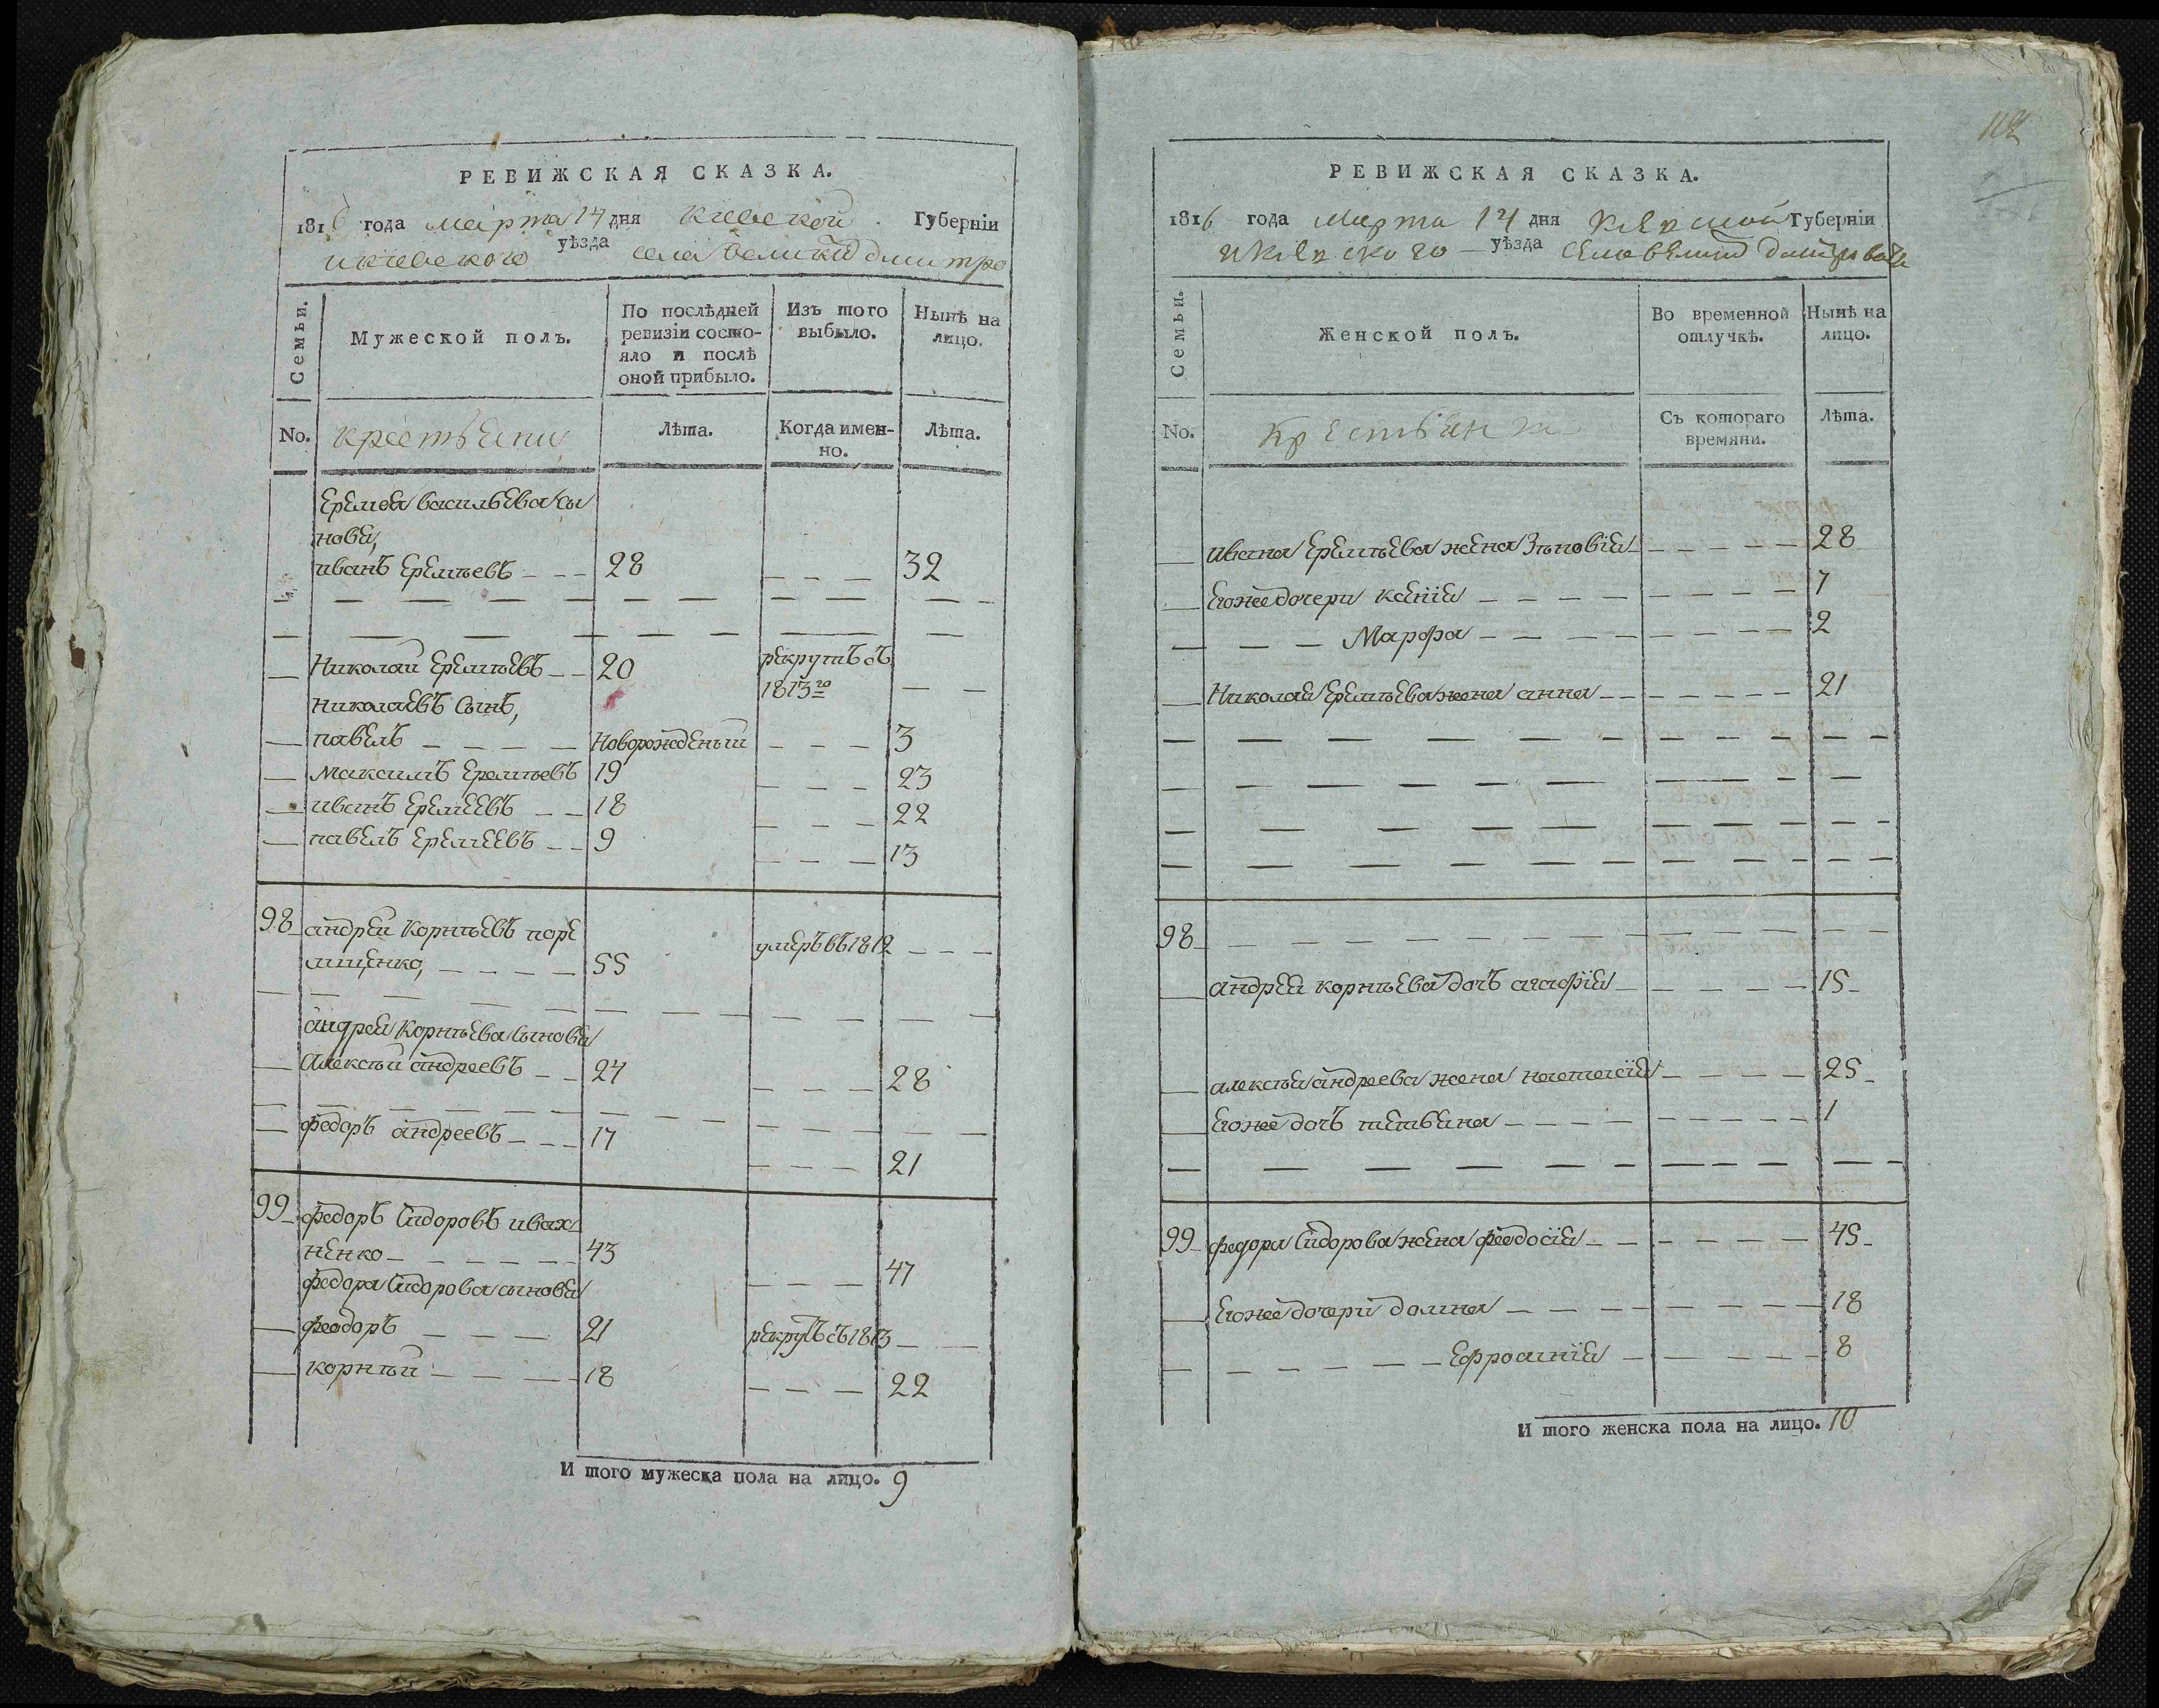 РЕВИЖСКАЯ СКАЗКА.
1816 года марта 14 дня Киевской Губерніи
и Киевского уѣзда села великой дмитро
Семьи.
Мужеской полъ.
По послѣдней ревизіи состо-
яло и послѣ
оной прибыло.
Изъ того
выбыло.
Нынѣ на
лицо.
No.
крестьяни
Лѣта.
Когда имен-
но.
Лѣта.
Еремея васильева сы
новя,
иванъ Еремѣевъ 28 32
Николай Еремѣевъ 20 рекрутъ съ
1813го
николаевъ сынъ,
павелъ Новорожденый 3
Максимъ Еремѣевъ 19 23
иванъ Еремеевъ 18 22
павелъ Еремеевъ 9 13
98 андрей Корнѣевъ поре
мщенко, 55 умеръ въ 1812
андрея Корнѣева сыновя
Алексѣй андреевъ 24 28
федоръ андреевъ 17 21
99 федоръ Сидоровъ ивах
ненко 43 47
федора Сидорова сыновя
феодоръ 21 рекрутъ съ 1813
корнѣй 18 22
И того мужеска пола на лицо. 9
112
РЕВИЖСКАЯ СКАЗКА.
1816 года Марта 14 дня Губерніи
уѣзда
Семьи.
Женской полъ.
Во временной
отлучкѣ.
Нынѣ на
лицо.
No.
Крестьянки
Съ котораго
времяни.
Лѣта.
ивана Еремѣева жена Зѣновія 28
Егожедочери ксенія 7
Марфа 2
Николая Еремѣева жена анна 21
98
андрея корнѣева дочъ агафія 15
алексѣя андреева жена настасія 25
Егоже дочъ тетьяна 1
99 федора Сидорова жена феодосія 45
Егоже дочери домна 18
Ефросинія 8
И того женска пола на лицо. 10